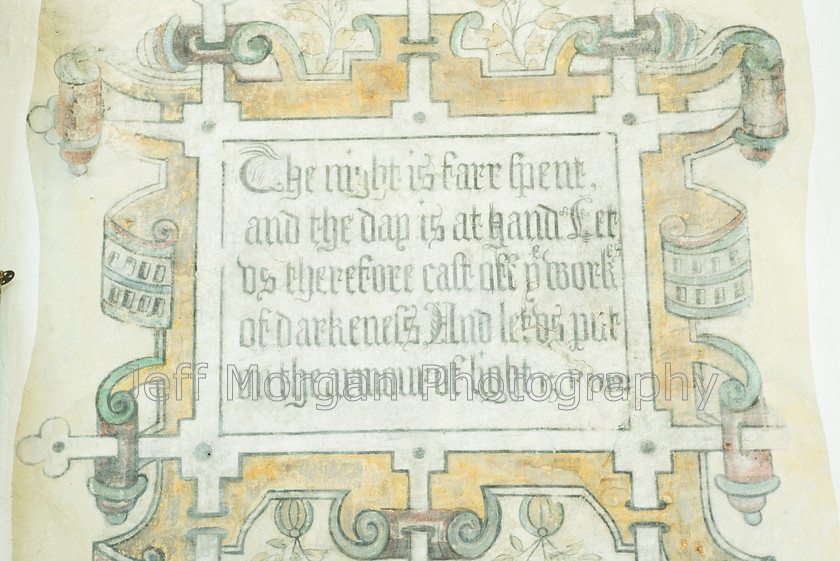 The night is farr spent,
and the day is at hand Let
vs therefore cast off yᵉ workᵉˢ
of darkeness And let vs put
on the armour of light
Jeff Morgan Photography